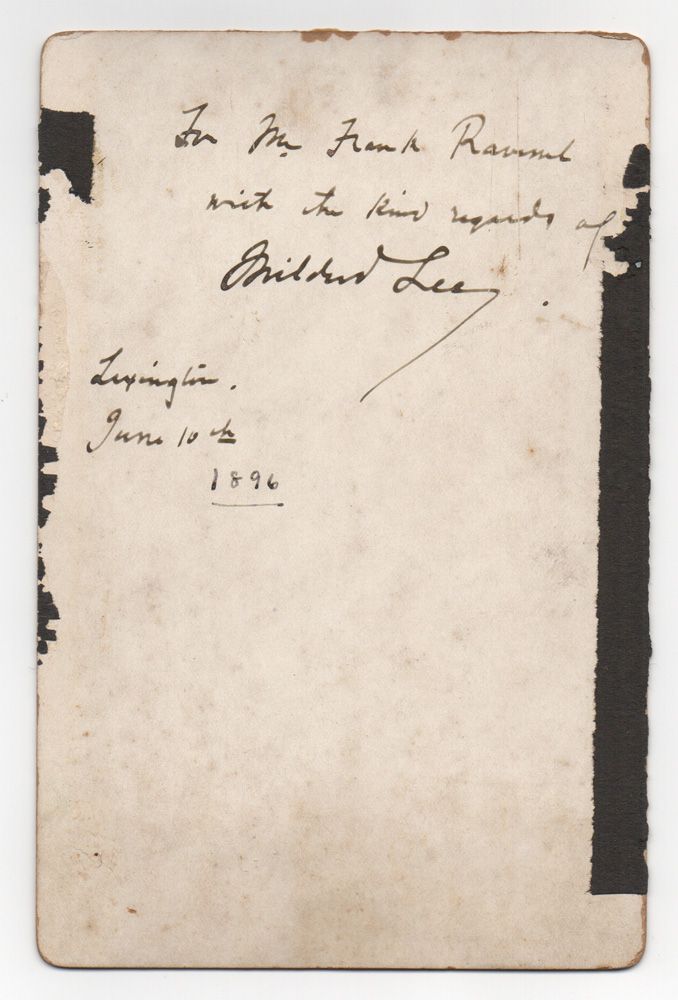 For Mr Frank Ravenel
with the kind regards of
Mildred Lee.
Lexington.
June 10th
1896